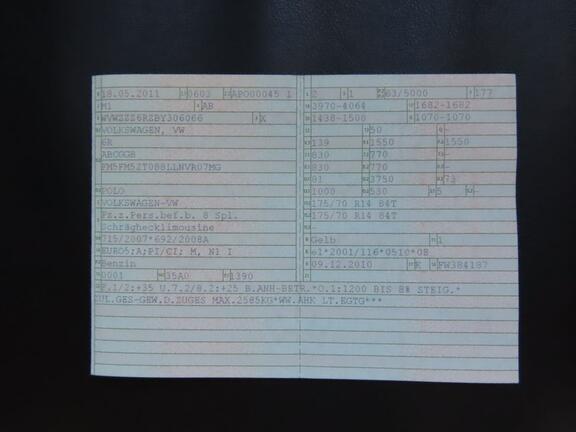 18.05.2011 0603 APO00045 1
M1 AB
WVWZZZ6RZBY306066 X
VOLKSWAGEN, VW
6R
ABCGGB
FM5FM5ZT088LLNVR07MG
POLO
VOLKSWAGEN-VW
Fz.z.Pers.bef.b. 8 Spl.
Schräghecklimousine
715/2007*692/2008A
EURO5;A;PI/CI; M, N1 I
Benzin
0001 35A0 1390
2 1 63/5000 177
3970-4064 1682-1682
1438-1500 1070-1070
50 -
139 1550 1550
830 770 -
830 770 -
81 3750 73
1000 530 5 -
175/70 R14 84T
175/70 R14 84T
-
Gelb 1
e1*2001/116*0510*08
09.12.2010 K FW384187
F.1/2:+35 U.7.2/8.2:+25 B.ANH-BETR.*O.1:1200 BIS 8% STEIG.*
ZUL.GES-GEW.D.ZUGES MAX.2585KG*WW.AHK LT.EGTG***